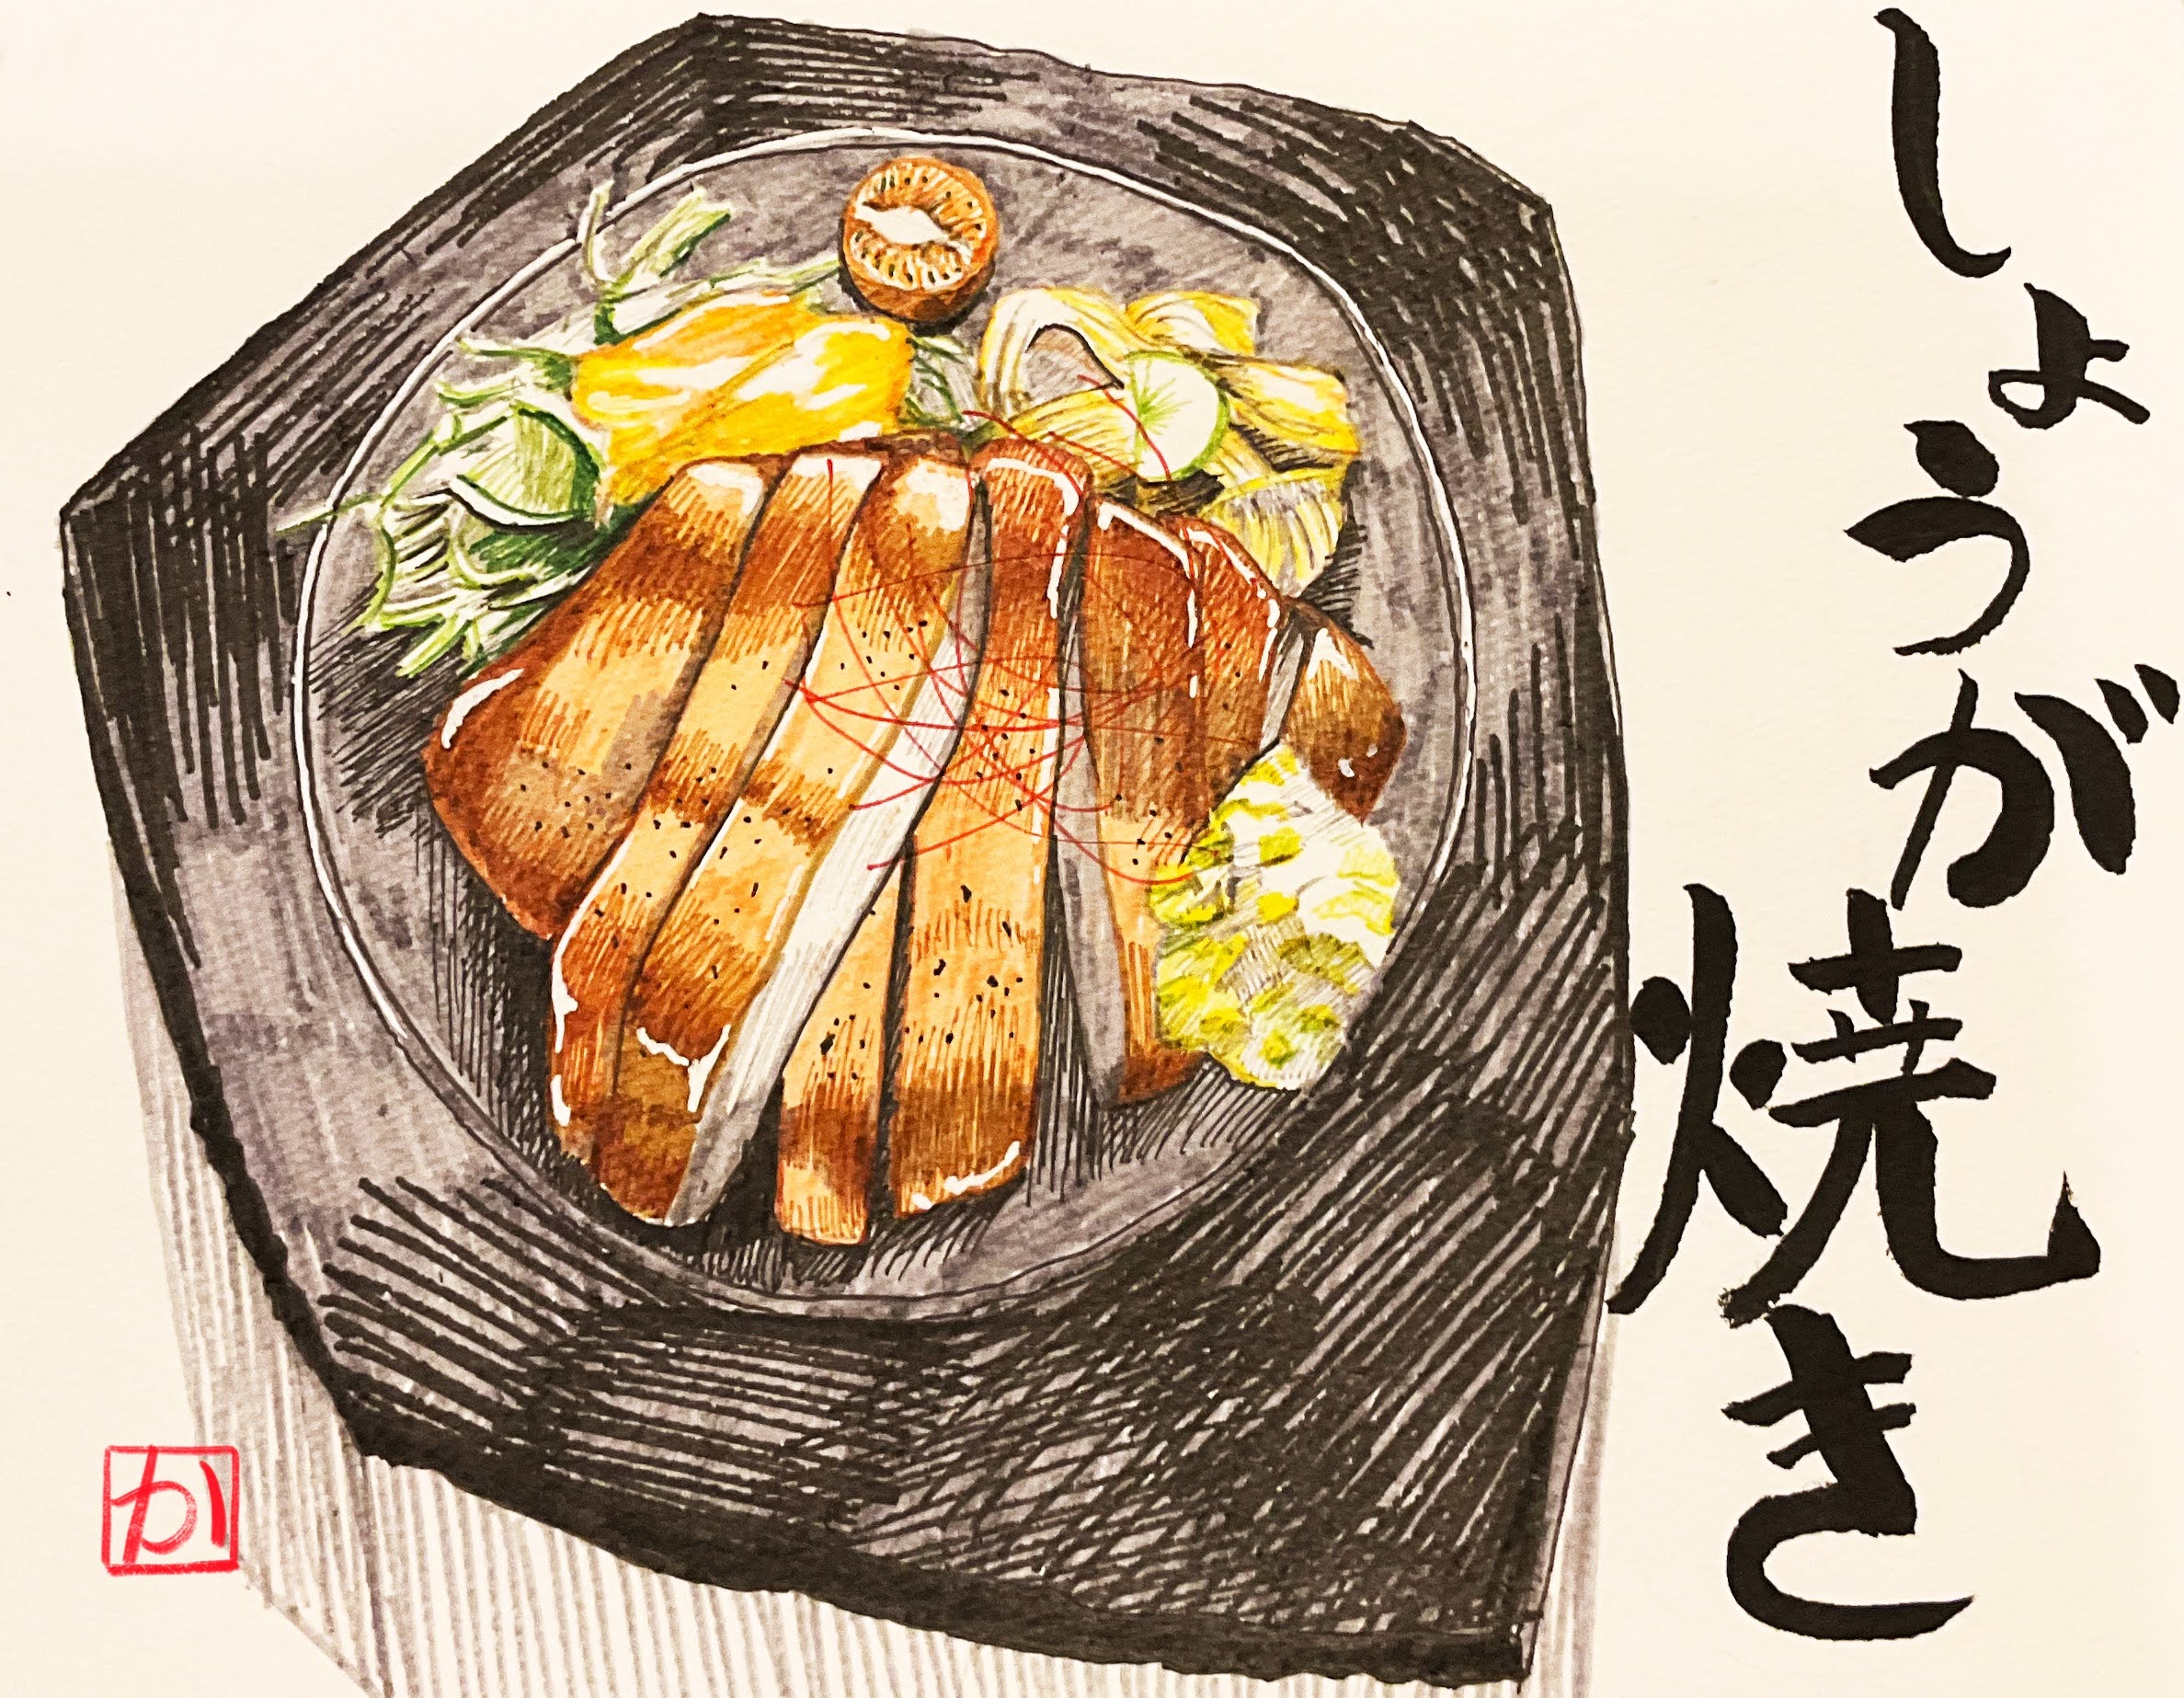 しょうが焼き
か